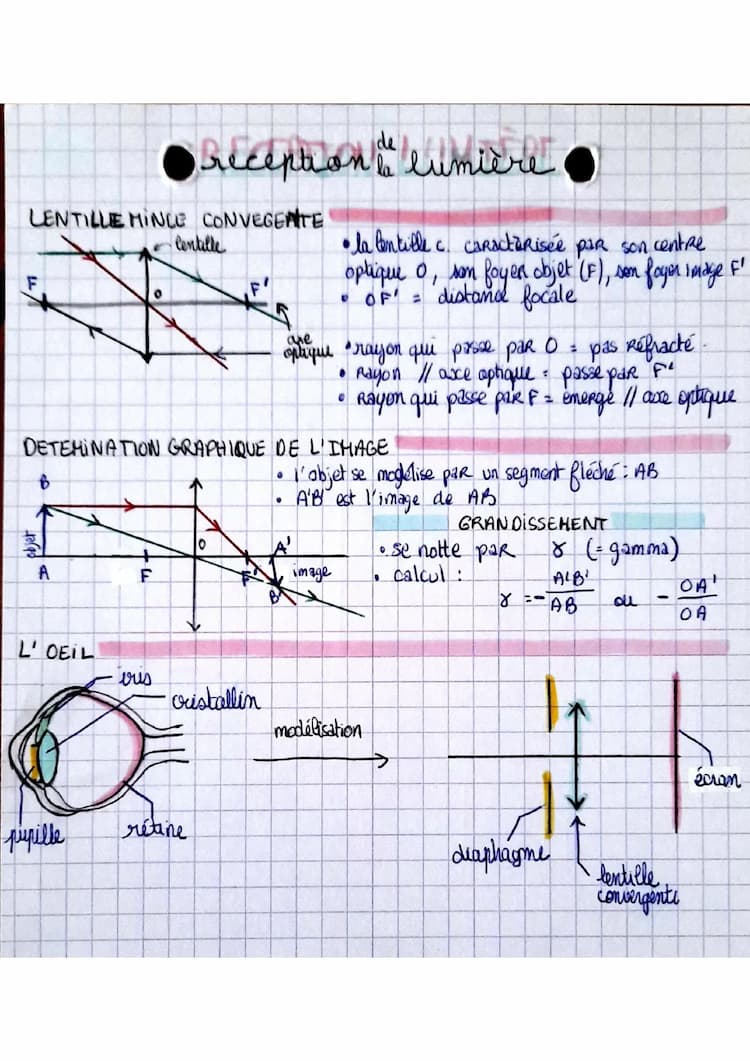 réception de la lumière
LENTILLE MINCE CONVEGENTE
lentille
F
O
F'
axe
optique
• la lentille c. caractérisée par son centre
optique O, son foyer objet (F), son foyer image F'
• OF' = distance focale
• rayon qui passe par O = pas réfracté.
• rayon // axe optique = passe par F'
• rayon qui passe par F = émerge // axe optique
DETEMINATION GRAPHIQUE DE L'IMAGE
B
objet
A
F
O
F'
A'
B'
image
• l'objet se modélise par un segment fléché : AB
• A'B' est l'image de AB
GRANDISSEMENT
• se notte par γ (= gamma)
• calcul :
γ = - A'B' / AB ou - OA' / OA
L'OEIL
iris
cristallin
pupille
rétine
modélisation
diaphagme
lentille
convergente
écran